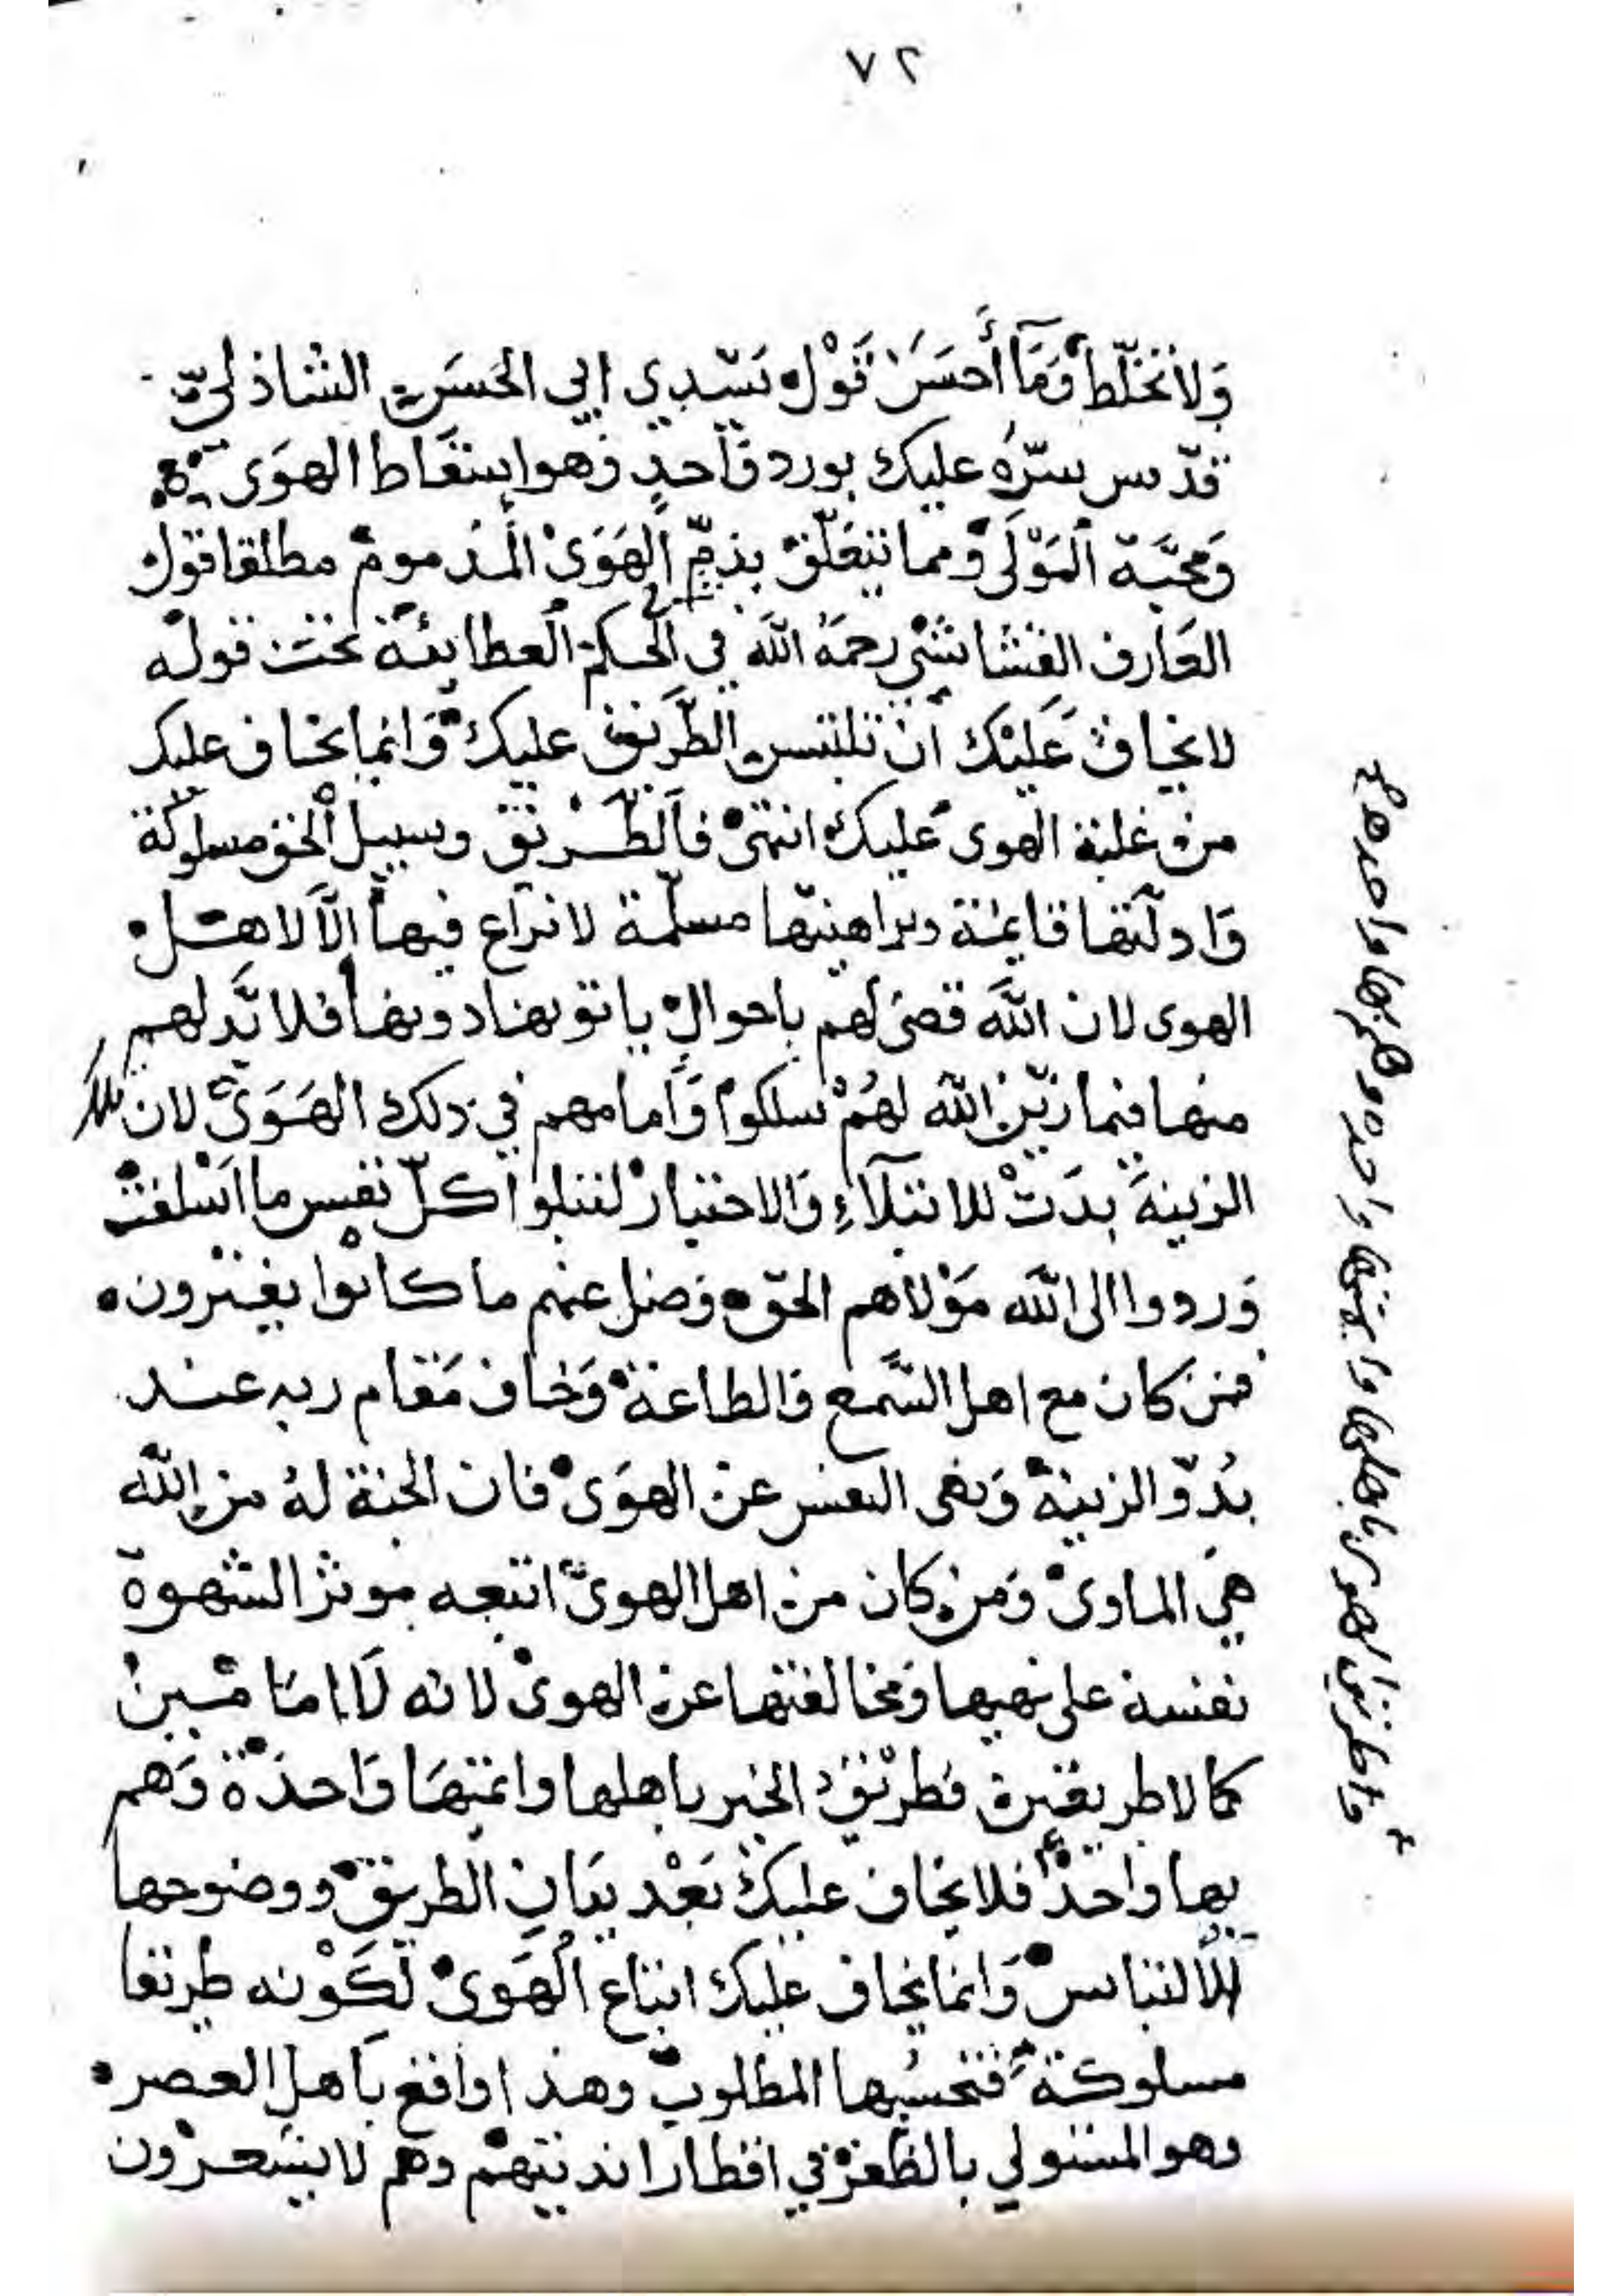 ٧٢
وَلَا تُخَلِّطْ وَمَا أَحْسَنَ قَوْلَ سَيِّدِي ابي الحَسَنِ الشاذليّ
قدّس سرّهُ عليك بورد وَاحدٍ وَهو اسقاط الهوَى
وَمحبَّة المَوْلَى ومما يتعَلّق بذمّ الهَوَىْ المذموم مطلقا قول
العَارف القشاشي رحمَهُ اللّه في الحكم العطائيّة تحت قوله
لا يخاف عَلَيْك أن تلتبس الطّريق عليك وَانما يخاف عليك
من غلبة الهوى عَليك انتهىْ فالطّريق وسبيل الحق مسلوكة
وَادلّتها قايمة وبراهينها مسلّمة لا نزاع فيها إلّا لاهل
الهوى لان اللّه قضى لهم باحوال ياتو بها دونها فلا بدّ لهم
منها فيما زيّن اللّه لهُمْ سلكوا وَامامهم في ذلك الهَوَىْ لان تلك
الزينة بدَتْ للابتلاءِ وَالاختبار لتبلوا كلّ نفس ما اسْلفت
وَردوا الى اللّه مَوْلاهم الحقّ وَضل عنهم ما كانوا يفترون
فمن كان مع اهل السّمع وَالطاعة وَخاف مَقام ربه عند
بُدوّ الزينة وَنهى النفس عن الهوَىْ فان الجنة لهُ من اللّه
هيَ الماوىْ وَمن كان من اهل الهوىْ اتبعه موثرا لشهوة
نفسه على نهيها وَمخالفتها عن الهوىْ لانه لَا امامَين
كما لا طريقين فطريق الخير باهلها وائمتها وَاحدة وَهم
بها واحد فلا يخاف عليك بَعْد بيَان الطريق ووضوحها
للالتباس وَانما يخاف عليك اتباع الهَوىْ لكَوْنه طريقا
مسلوكة فتحسبُها المطلوب وهذا وَاقع بأهل العصر
وهو المستولي بالظفر في اقطار انديتهمْ وهم لا يشعرون
واطريق الهوى باهلها وايمتها واحده وهم بها واحد هـ